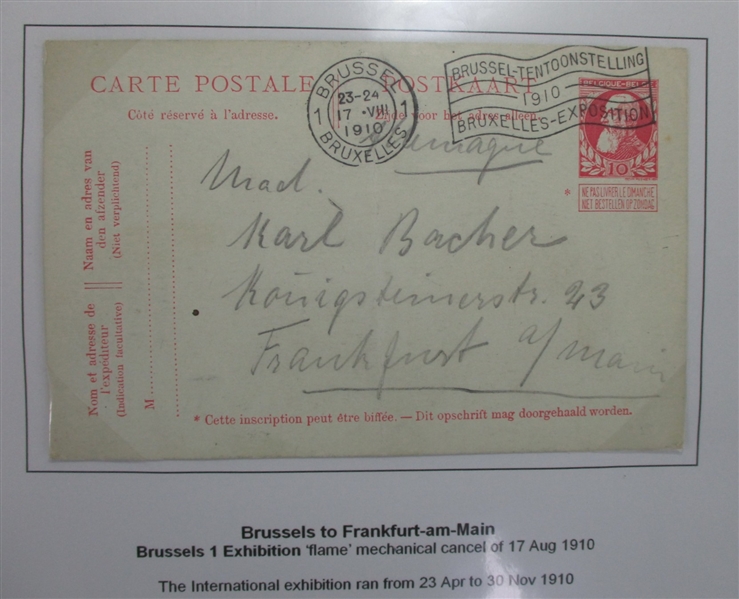 CARTE POSTALE POSTKAART
Côté réservé à l'adresse. Zijde voor het adres alleen.
BRUSSEL
1 23-24 1
17 ·VIII
1910
BRUXELLES
BRUSSEL-TENTOONSTELLING
1910
BRUXELLES-EXPOSITION
BELGIQUE-BELGIË
10
* NE PAS LIVRER LE DIMANCHE
NIET BESTELLEN OP ZONDAG
Allemagne
Mad.
Karl Bacher
Königsteinerstr. 23
Frankfurt a/main
Naam en adres van
den afzender
(Niet verplichtend)
Nom et adresse de
l'expéditeur
(Indication facultative)
M
* Cette inscription peut être biffée. — Dit opschrift mag doorgehaald worden.
Brussels to Frankfurt-am-Main
Brussels 1 Exhibition 'flame' mechanical cancel of 17 Aug 1910
The International exhibition ran from 23 Apr to 30 Nov 1910